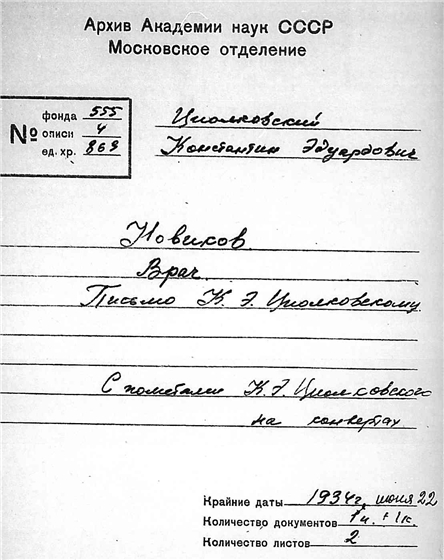 Архив Академии наук СССР
Московское отделение
№ фонда 555
описи 4
ед. хр. 863
Циолковский
Константин Эдуардович
Новиков
Врач
Письмо К. Э. Циолковскому
С пометами К. Э. Циолковского
на конвертах
Крайние даты 1934г. июня 22
Количество документов 1п. + 1к.
Количество листов 2